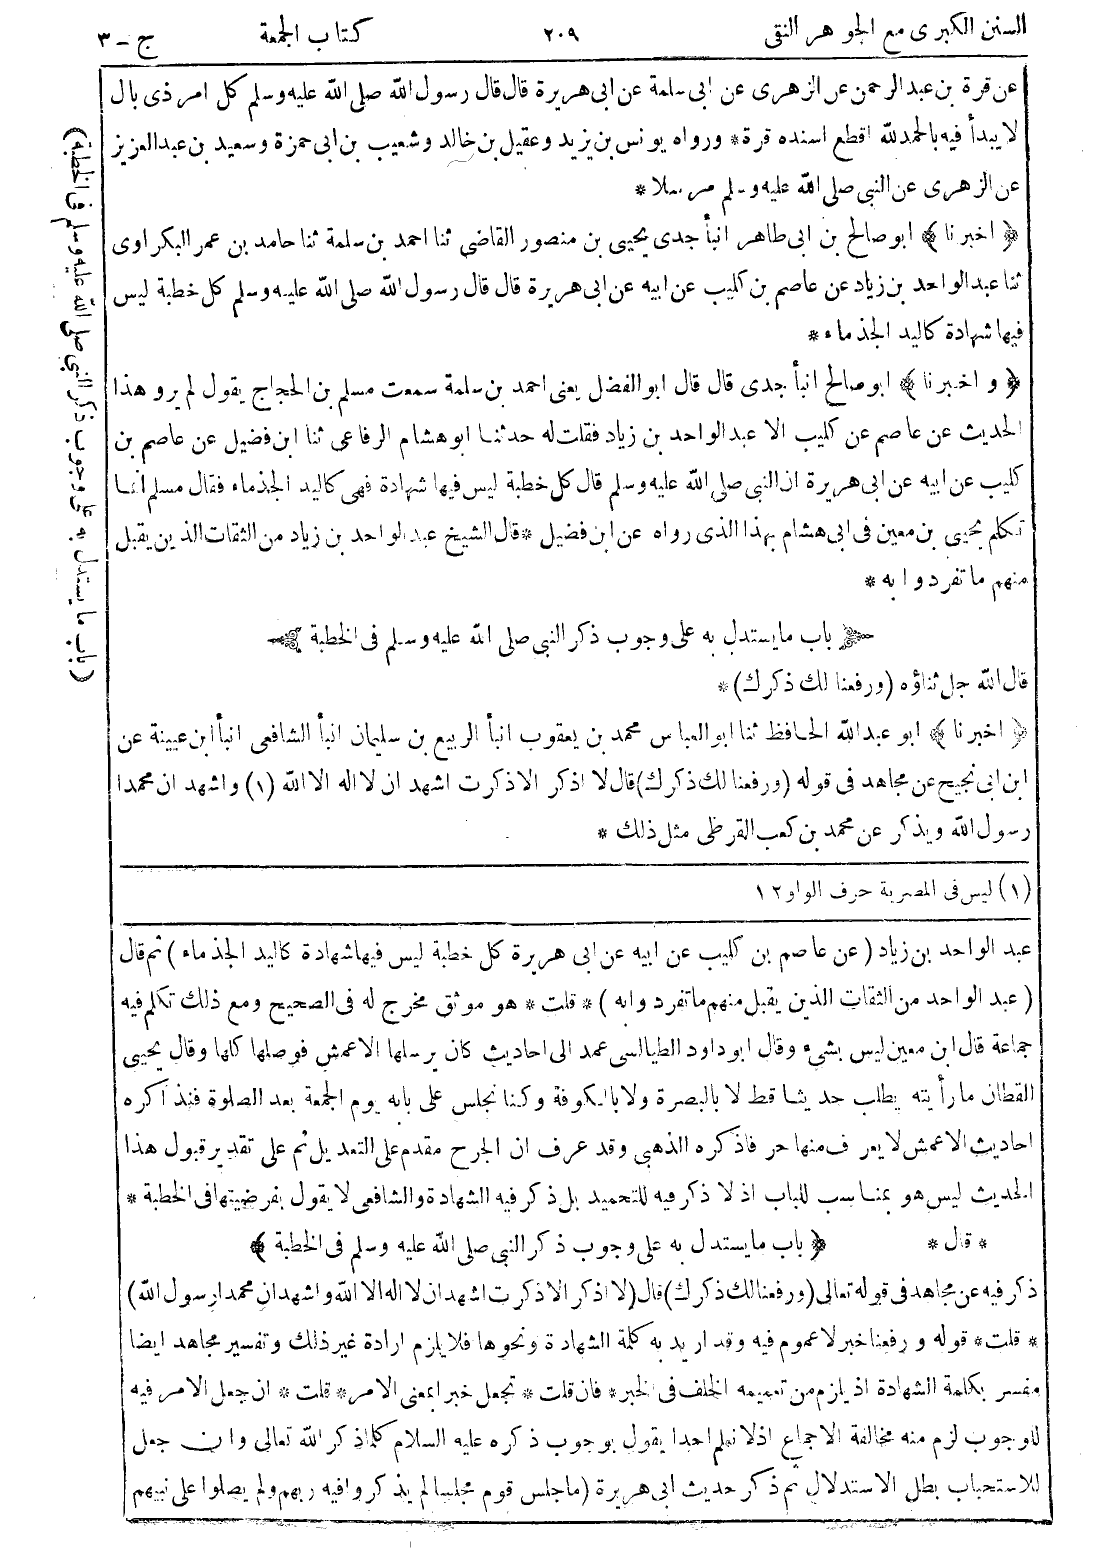 السنن الكبرى مع الجوهر النقى ٢٠٩ كتاب الجمعة ج - ٣
عن قرة بن عبد الرحمن عن الزهرى عن ابى سلمة عن ابى هريرة قال قال رسول الله صلى الله عليه وسلم كل امر ذى بال
لا يبدأ فيه بالحمد لله اقطع اسنده قرة * ورواه يونس بن يزيد وعقيل بن خالد وشعيب بن ابى حمزة وسعيد بن عبد العزيز
عن الزهرى عن النبى صلى الله عليه وسلم مرسلا *
﴿ اخبرنا ﴾ ابو صالح بن ابى طاهر انبأ جدى يحيى بن منصور القاضى ثنا احمد بن سلمة ثنا حامد بن عمر البكراوى
ثنا عبد الواحد بن زياد عن عاصم بن كليب عن ابيه عن ابى هريرة قال قال رسول الله صلى الله عليه وسلم كل خطبة ليس
فيها شهادة كاليد الجذماء *
﴿ و اخبرنا ﴾ ابو صالح انبأ جدى قال قال ابو الفضل يعنى احمد بن سلمة سمعت مسلم بن الحجاج يقول لم يرو هذا
الحديث عن عاصم عن كليب الا عبد الواحد بن زياد فقلت له حدثنا ابو هشام الرفاعى ثنا ابن فضيل عن عاصم بن
كليب عن ابيه عن ابى هريرة ان النبى صلى الله عليه وسلم قال كل خطبة ليس فيها شهادة فهى كاليد الجذماء فقال مسلم انما
تكلم يحيى بن معين فى ابى هشام بهذا الذى رواه عن ابن فضيل * قال الشيخ عبد الواحد بن زياد من الثقات الذين يقبل
منهم ما تفردوا به *
باب ما يستدل به على وجوب ذكر النبى صلى الله عليه وسلم فى الخطبة
قال الله جل ثناؤه (ورفعنا لك ذكرك) *
﴿ اخبرنا ﴾ ابو عبد الله الحافظ ثنا ابو العباس محمد بن يعقوب انبأ الربيع بن سليمان انبأ الشافعى انبأ ابن عيينة عن
ابن ابى نجيح عن مجاهد فى قوله (ورفعنا لك ذكرك) قال لا اذكر الا ذكرت اشهد ان لا اله الا الله (١) واشهد ان محمدا
رسول الله ويذكر عن محمد بن كعب القرظى مثل ذلك *
(١) ليس فى المصرية حرف الواو ١٢
عبد الواحد بن زياد ( عن عاصم بن كليب عن ابيه عن ابى هريرة كل خطبة ليس فيها شهادة كاليد الجذماء ) ثم قال
( عبد الواحد من الثقات الذين يقبل منهم ما تفردوا به ) * قلت * هو موثق مخرج له فى الصحيح ومع ذلك تكلم فيه
جماعة قال ابن معين ليس بشىء وقال ابو داود الطيالسى عمد الى احاديث كان يرسلها الاعمش فوصلها كلها وقال يحيى
القطان ما رأيته يطلب حديثا قط لا بالبصرة ولا بالكوفة وكنا نجلس على بابه يوم الجمعة بعد الصلوة فنذاكره
احاديث الاعمش لا يعرف منها حرفا ذكره الذهبى وقد عرف ان الجرح مقدم على التعديل ثم على تقدير قبول هذا
الحديث ليس هو بمناسب للباب اذ لا ذكر فيه للتحميد بل ذكر فيه الشهادة والشافعى لا يقول بفرضيتها فى الخطبة *
* قال * ﴿ باب ما يستدل به على وجوب ذكر النبى صلى الله عليه وسلم فى الخطبة ﴾
ذكر فيه عن مجاهد فى قوله تعالى (ورفعنا لك ذكرك) قال (لا اذكر الا ذكرت اشهد ان لا اله الا الله واشهد ان محمدا رسول الله)
* قلت * قوله ورفعنا خبر لا عموم فيه وقد اريد به كلمة الشهادة ونحوها فلا يلزم ارادة غير ذلك وتفسير مجاهد ايضا
مفسر بكلمة الشهادة اذ يلزم من تعميمه الخلف فى الخبر * فان قلت * نجعل خبرا بمعنى الامر * قلت * ان جعل الامر فيه
للوجوب لزم منه مخالفة الاجماع اذ لا نعلم احدا يقول بوجوب ذكره عليه السلام كلما ذكر الله تعالى وان جعل
للاستحباب بطل الاستدلال ثم ذكر حديث ابى هريرة (ما جلس قوم مجلسا لم يذكروا فيه ربهم ولم يصلوا على نبيهم
(باب ما يستدل به على وجوب ذكر النبى صلى الله عليه وسلم فى الخطبة)